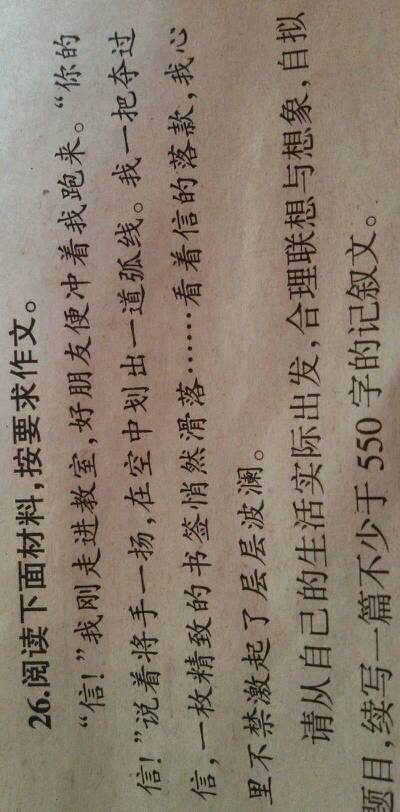 26.阅读下面材料,按要求作文。
“信!”我刚走进教室,好朋友便冲着我跑来。“你的
信!”说着将手一扬,在空中划出一道弧线。我一把夺过
信,一枚精致的书签悄然滑落……看着信的落款,我心
里不禁激起了层层波澜。
请从自己的生活实际出发,合理联想与想象,自拟
题目,续写一篇不少于 550 字的记叙文。